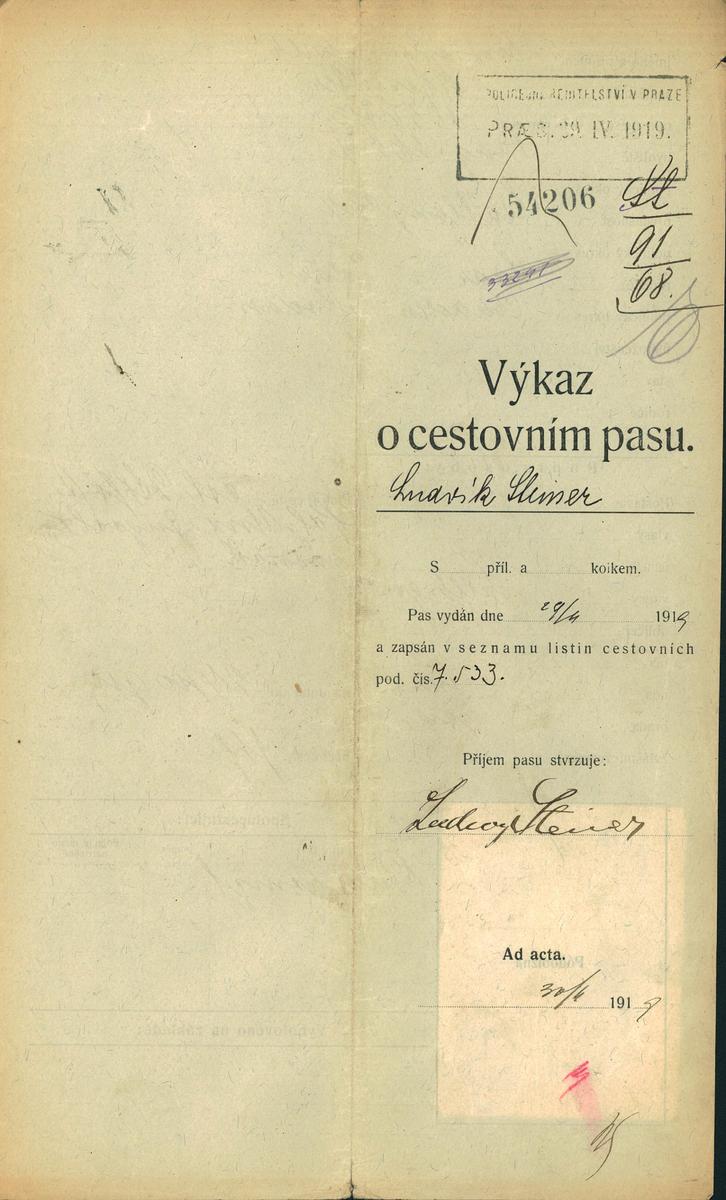 POLICEJNÍ ŘEDITELSTVÍ V PRAZE
PRÆS. 29. IV. 1919.
54206
St
91
68.
Výkaz
o cestovním pasu.
Ludvík Steiner
S příl. a kolkem.
Pas vydán dne 29/4 1919
a zapsán v seznamu listin cestovních
pod. čís. 7.533.
Příjem pasu stvrzuje:
Ludwig Steiner
Ad acta.
30/4 1919